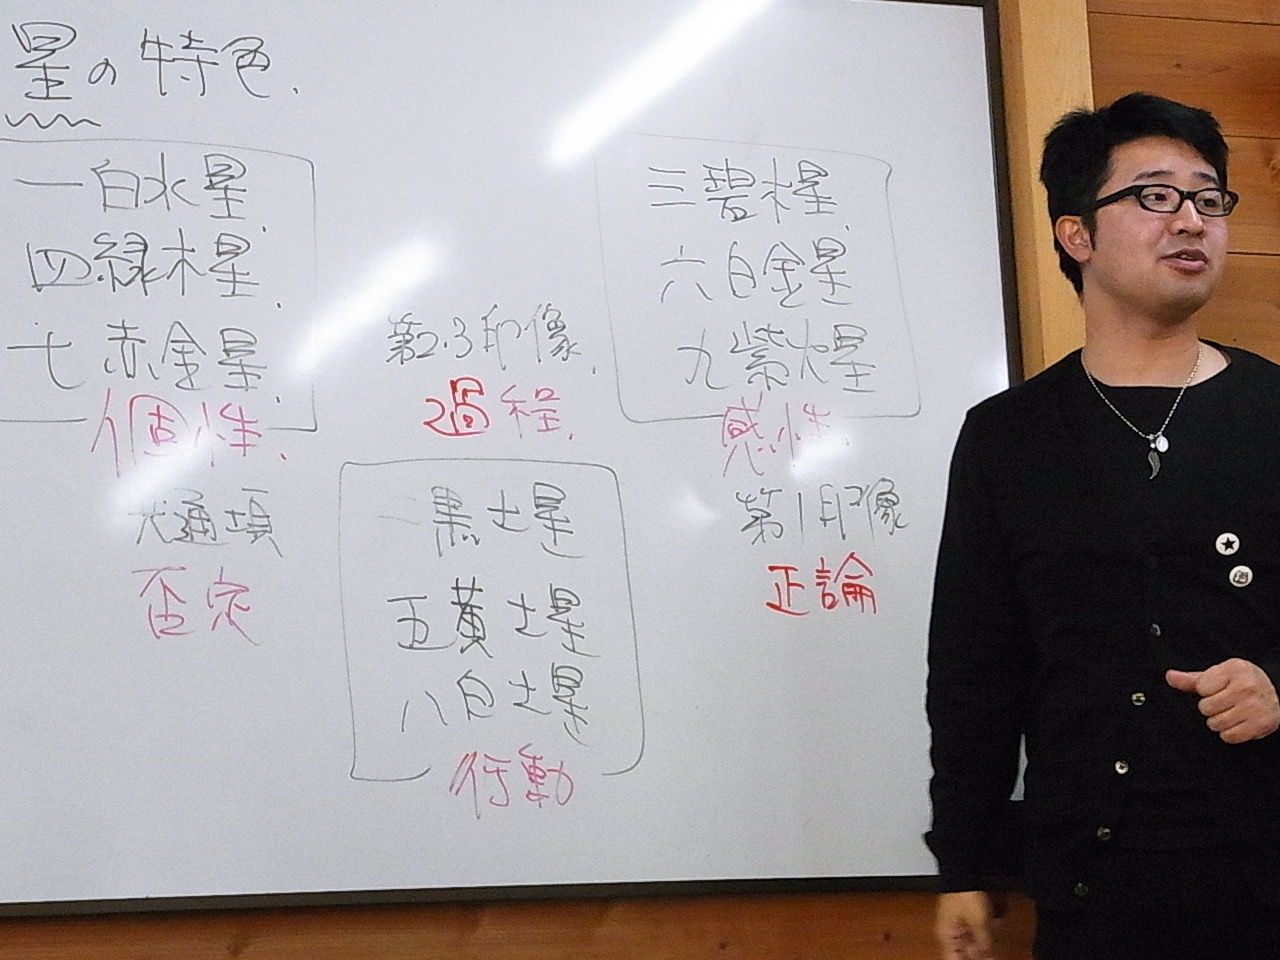 星の特色.
一白水星.
四緑木星.
七赤金星.
個性.
共通項
否定
第2.3印像.
過程.
二黒土星
五黄土星
八白土星
行動
三碧木星.
六白金星
九紫火星
感性.
第1印像
正論